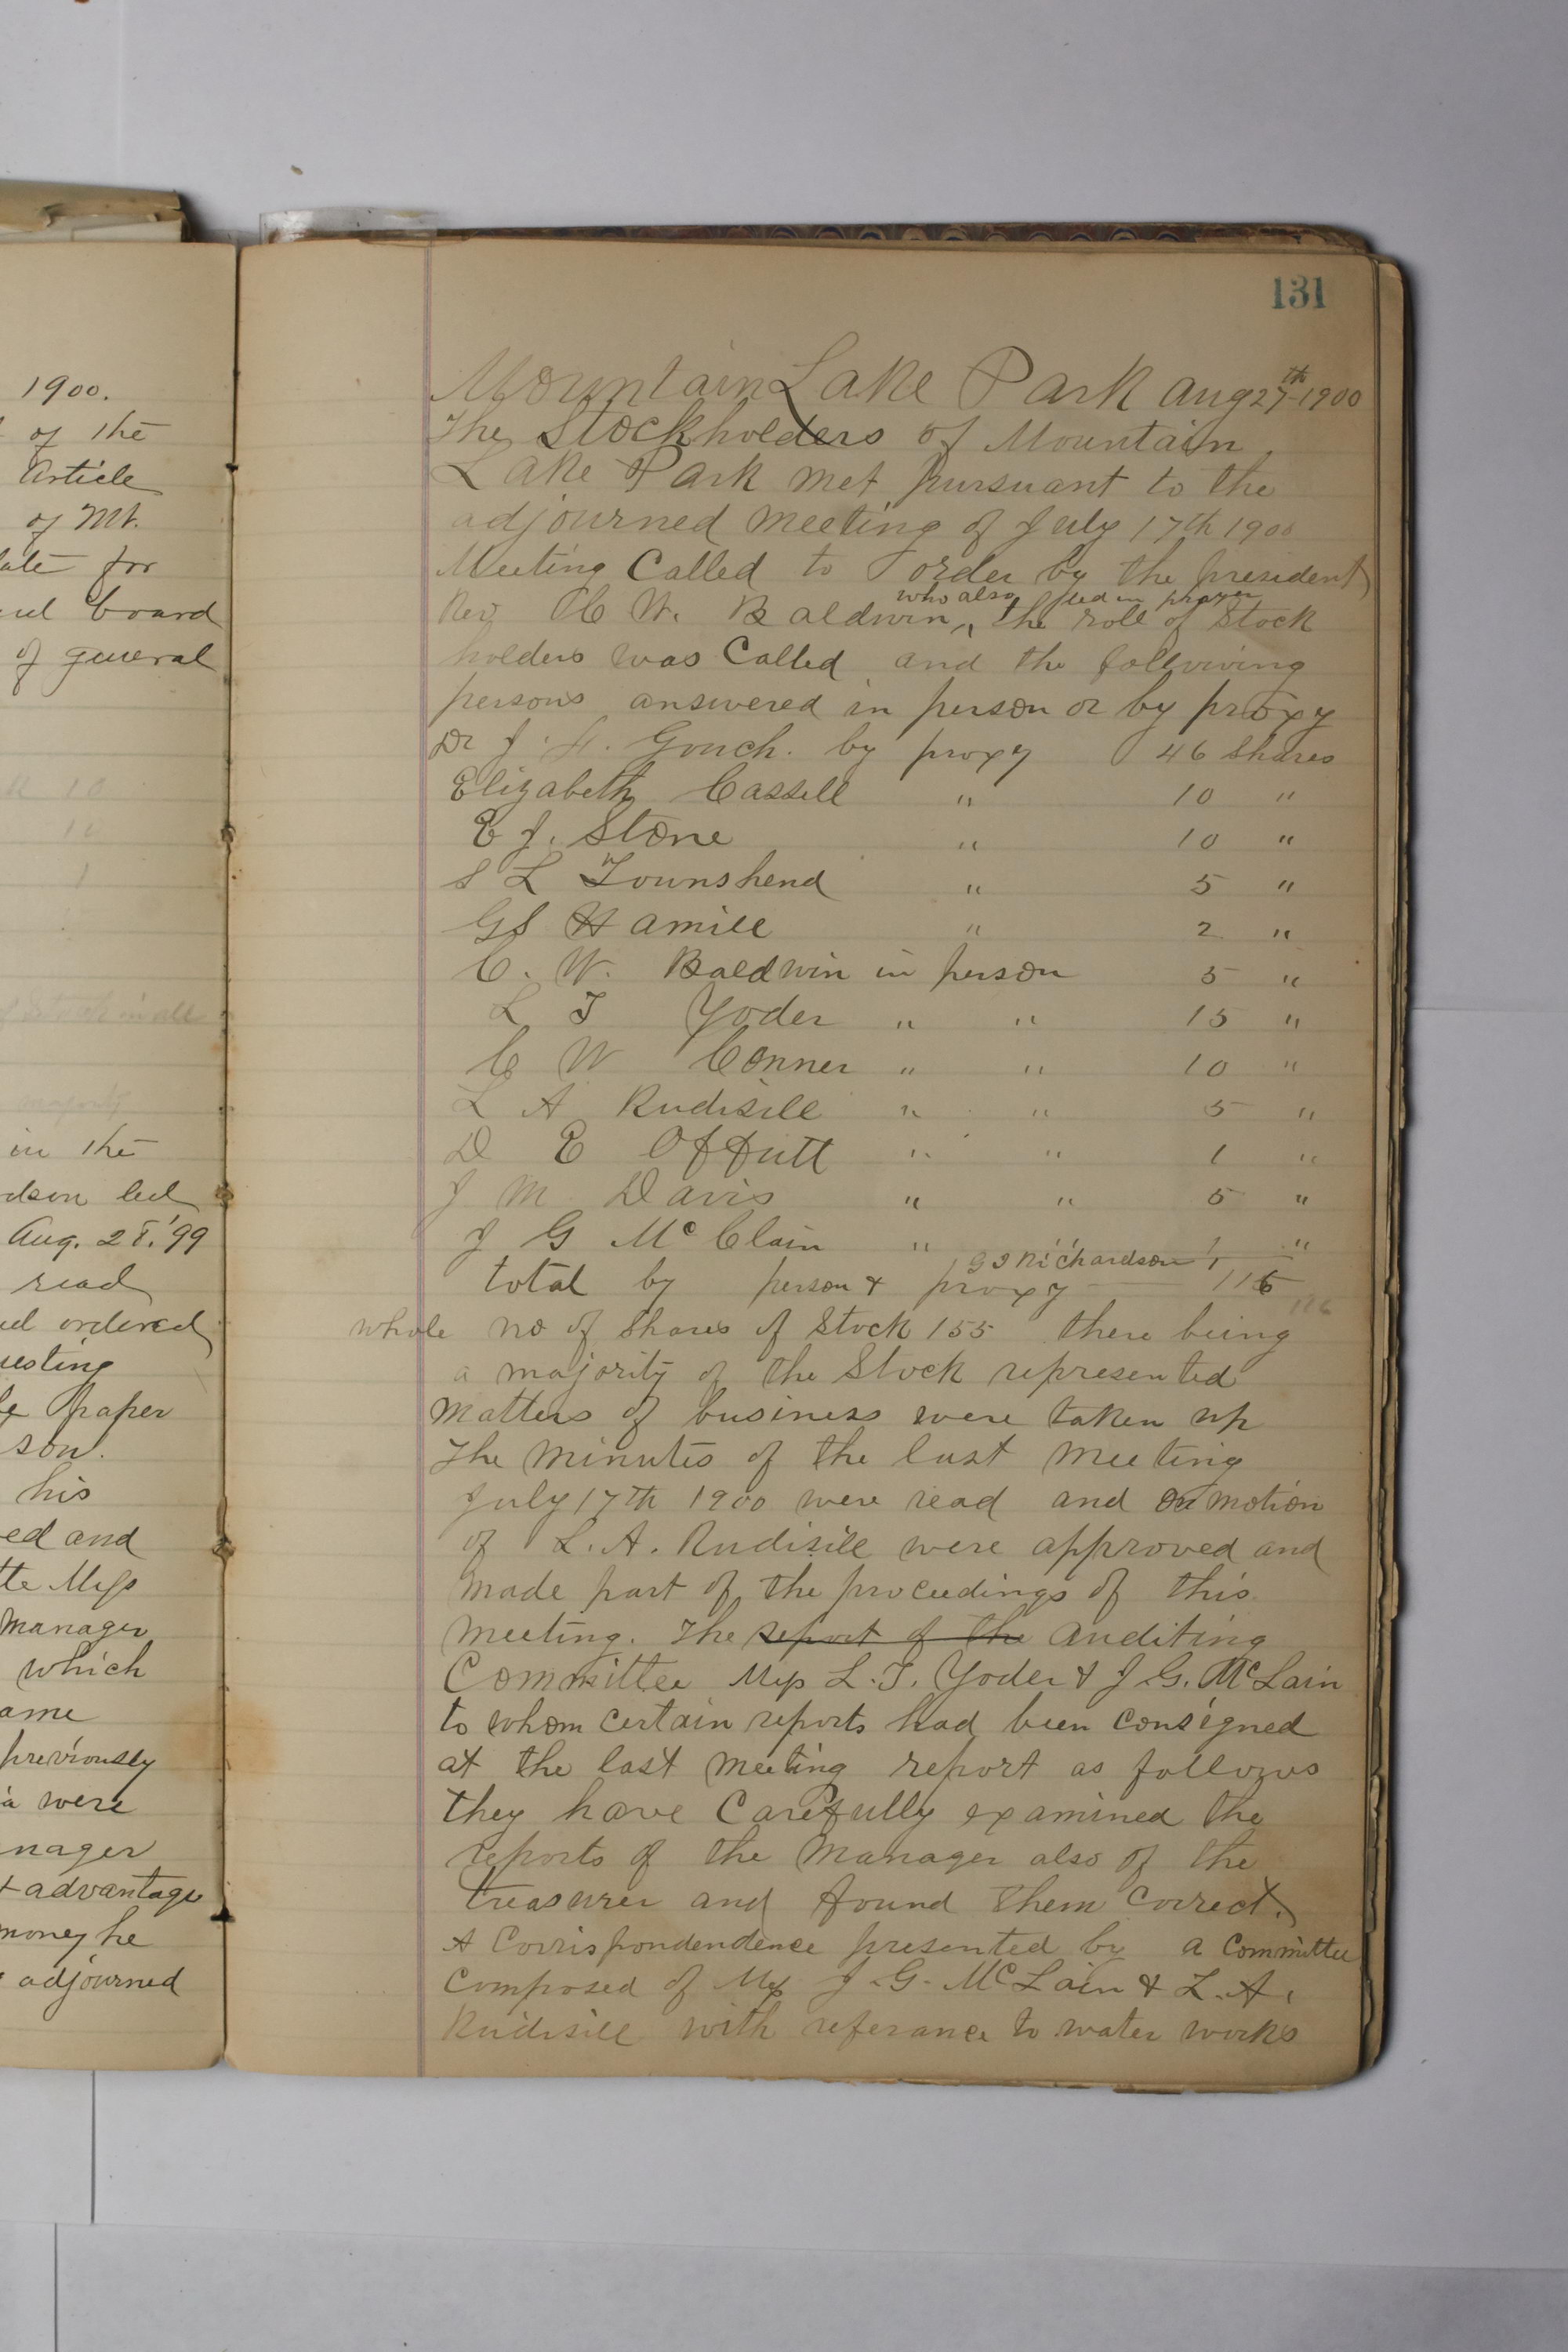 1900.
of the
Article
of Mt.
for
board
of general
in the
led
Aug. 28. '99
read
ordered
paper
son.
his
ed and
Mess
manager
which
ame
previously
were
nager
advantage
money he
adjourned
131
Mountain Lake Park Aug 27th 1900
The Stockholders of Mountain
Lake Park met pursuant to the
adjourned meeting of July 17th 1900
Meeting Called to order by the president
who also led in prayer
Rev C. W. Baldwin, the roll of Stock
holders was Called and the following
persons answered in person or by proxy
Dr J. H. Gouch. by proxy 46 Shares
Elizabeth Cassell " 10 "
E J. Stone " 10 "
S L Townshend " 5 "
GS Hamill " 2 "
C. W. Baldwin in person 5 "
L T Yoder " " 15 "
C W Conner " " 10 "
L A Rudisill " " 5 "
D E Offutt " " 1 "
J M Davis " " 5 "
J G McClain " " 1 "
Richardson 1
total by person & proxy 116
whole no of Shares of Stock 155 there being
a majority of the Stock represented
matters of business were taken up
The minutes of the last meeting
July 17th 1900 were read and on motion
of L. A. Rudisill were approved and
made part of the proceedings of this
meeting. The report of the auditing
Committee Mess L. T. Yoder & J. G. McLain
to whom certain reports had been consigned
at the last meeting report as follows
they have Carefully examined the
reports of the Manager also of the
treasurer and found them correct.
A Corrispondendence presented by a Committee
Composed of Mess J. G. McLain & L. A.
Rudisill with referance to water works